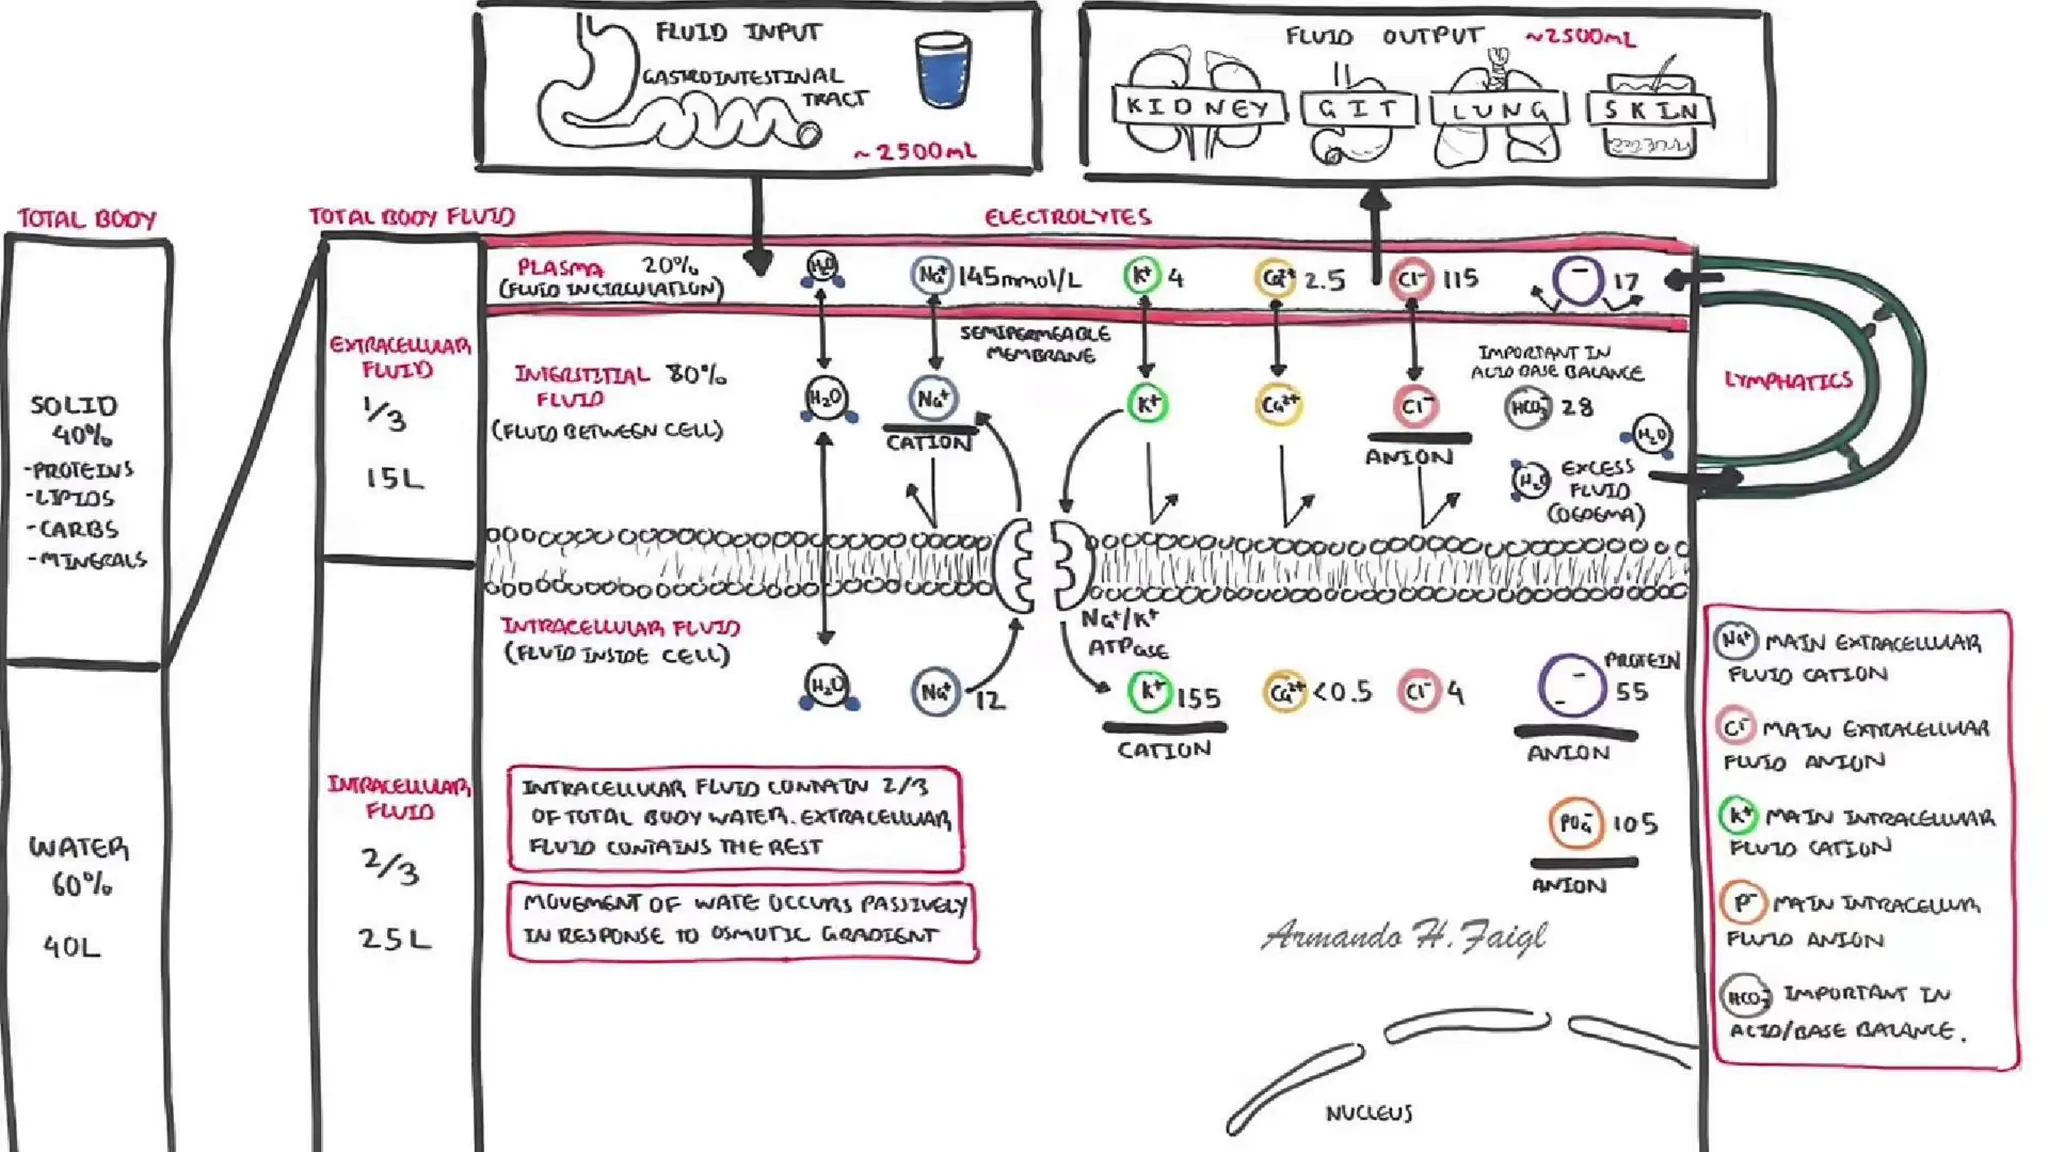 FLUID INPUT
GASTROINTESTINAL
TRACT
~2500mL
FLUID OUTPUT ~2500mL
KIDNEY
GIT
LUNG
SKIN
TOTAL BODY
SOLID
40%
-PROTEINS
-LIPIDS
-CARBS
-MINERALS
WATER
60%
40L
TOTAL BODY FLUID
EXTRACELLULAR
FLUID
1/3
15L
INTRACELLULAR
FLUID
2/3
25L
ELECTROLYTES
PLASMA 20%
(FLUID IN CIRCULATION)
H₂O
Na⁺ 145mmol/L
K⁺ 4
Ca²⁺ 2.5
Cl⁻ 115
- 17
SEMIPERMEABLE
MEMBRANE
INTERSTITIAL 80%
FLUID
(FLUID BETWEEN CELL)
H₂O
Na⁺
CATION
K⁺
Ca²⁺
Cl⁻
ANION
IMPORTANT IN
ACID BASE BALANCE
HCO₃⁻ 28
H₂O
H₂O
EXCESS
FLUID
(OEDEMA)
LYMPHATICS
INTRACELLULAR FLUID
(FLUID INSIDE CELL)
Na⁺/K⁺
ATPase
H₂O
Na⁺ 12
K⁺ 155
CATION
Ca²⁺ <0.5
Cl⁻ 4
PROTEIN
- - 55
ANION
PO₄⁻ 105
ANION
INTRACELLULAR FLUID CONTAIN 2/3
OF TOTAL BODY WATER. EXTRACELLULAR
FLUID CONTAINS THE REST
MOVEMENT OF WATE OCCURS PASSIVELY
IN RESPONSE TO OSMOTIC GRADIENT
Armando H. Faigl
NUCLEUS
Na⁺ MAIN EXTRACELLULAR
FLUID CATION
Cl⁻ MAIN EXTRACELLULAR
FLUID ANION
K⁺ MAIN INTRACELLULAR
FLUID CATION
P⁻ MAIN INTRACELLULR
FLUID ANION
HCO₃⁻ IMPORTANT IN
ACID/BASE BALANCE.